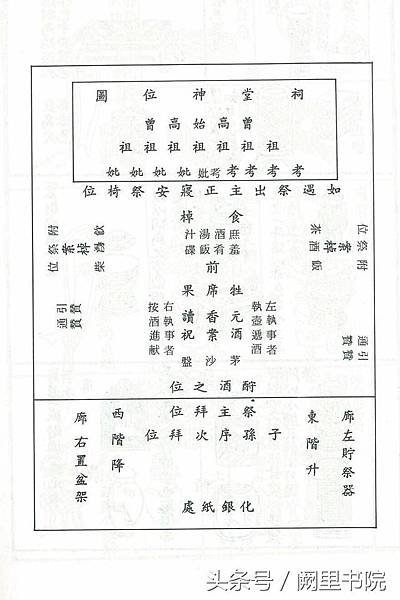 祠堂神位圖
曾高始高曾
祖祖祖祖祖祖祖
考考考考考妣妣妣妣妣
如遇祭出主正寢安祭椅位
食棹
庶羞
酒肴
湯飯
汁碟
附祭位
案棹
飯酒茶
附祭位
案棹
前
牲席果
元酒
香案
讀祝
茅沙盤
左執事者
執壺遞酒
右執事者
按酒進献
引贊
通贊
引贊
通贊
酹酒之位
祭主拜位
子孫序次拜位
廊左貯祭器
東階升
西階降
廊右置盆架
化銀紙處
头条号 / 阙里书院